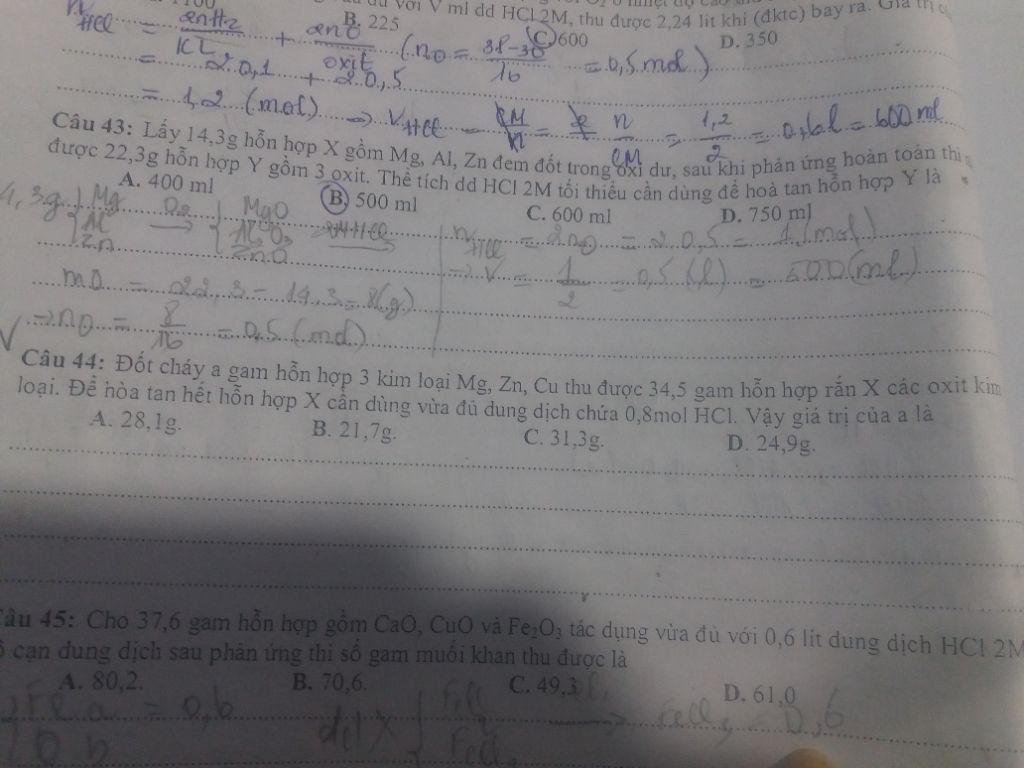 với V ml dd HCl 2M, thu được 2,24 lít khí (đktc) bay ra. Giá trị
B. 225
C. 600
D. 350
n HCl = 2nH2 / KL + 2nO / oxit (nO = 38-30 / 16 = 0,5 mol)
= 2.0,1 + 2.0,5
= 1,2 (mol) → V HCl = n / CM = 1,2 / 2 = 0,6l = 600 ml
Câu 43: Lấy 14,3g hỗn hợp X gồm Mg, Al, Zn đem đốt trong oxi dư, sau khi phản ứng hoàn toàn thì
được 22,3g hỗn hợp Y gồm 3 oxit. Thể tích dd HCl 2M tối thiểu cần dùng để hoà tan hỗn hợp Y là
A. 400 ml
B. 500 ml
C. 600 ml
D. 750 ml
4,3g { Mg Al Zn → O2 { MgO Al2O3 ZnO +HCl →
mO = 22,3 - 14,3 = 8(g)
⇒ nO = 8 / 16 = 0,5 (mol)
nHCl = 2nO = 2.0,5 = 1 (mol)
⇒ V = 1 / 2 = 0,5 (l) = 500 (ml)
Câu 44: Đốt cháy a gam hỗn hợp 3 kim loại Mg, Zn, Cu thu được 34,5 gam hỗn hợp rắn X các oxit kim
loại. Để hòa tan hết hỗn hợp X cần dùng vừa đủ dung dịch chứa 0,8mol HCl. Vậy giá trị của a là
A. 28,1g.
B. 21,7g.
C. 31,3g.
D. 24,9g.
Câu 45: Cho 37,6 gam hỗn hợp gồm CaO, CuO và Fe2O3 tác dụng vừa đủ với 0,6 lít dung dịch HCl 2M
cạn dung dịch sau phản ứng thì số gam muối khan thu được là
A. 80,2.
B. 70,6.
C. 49,3
D. 61,0
Fe a = 0,6
O b
dd X { FeCl2 FeCl → FeCl3 = 0,6